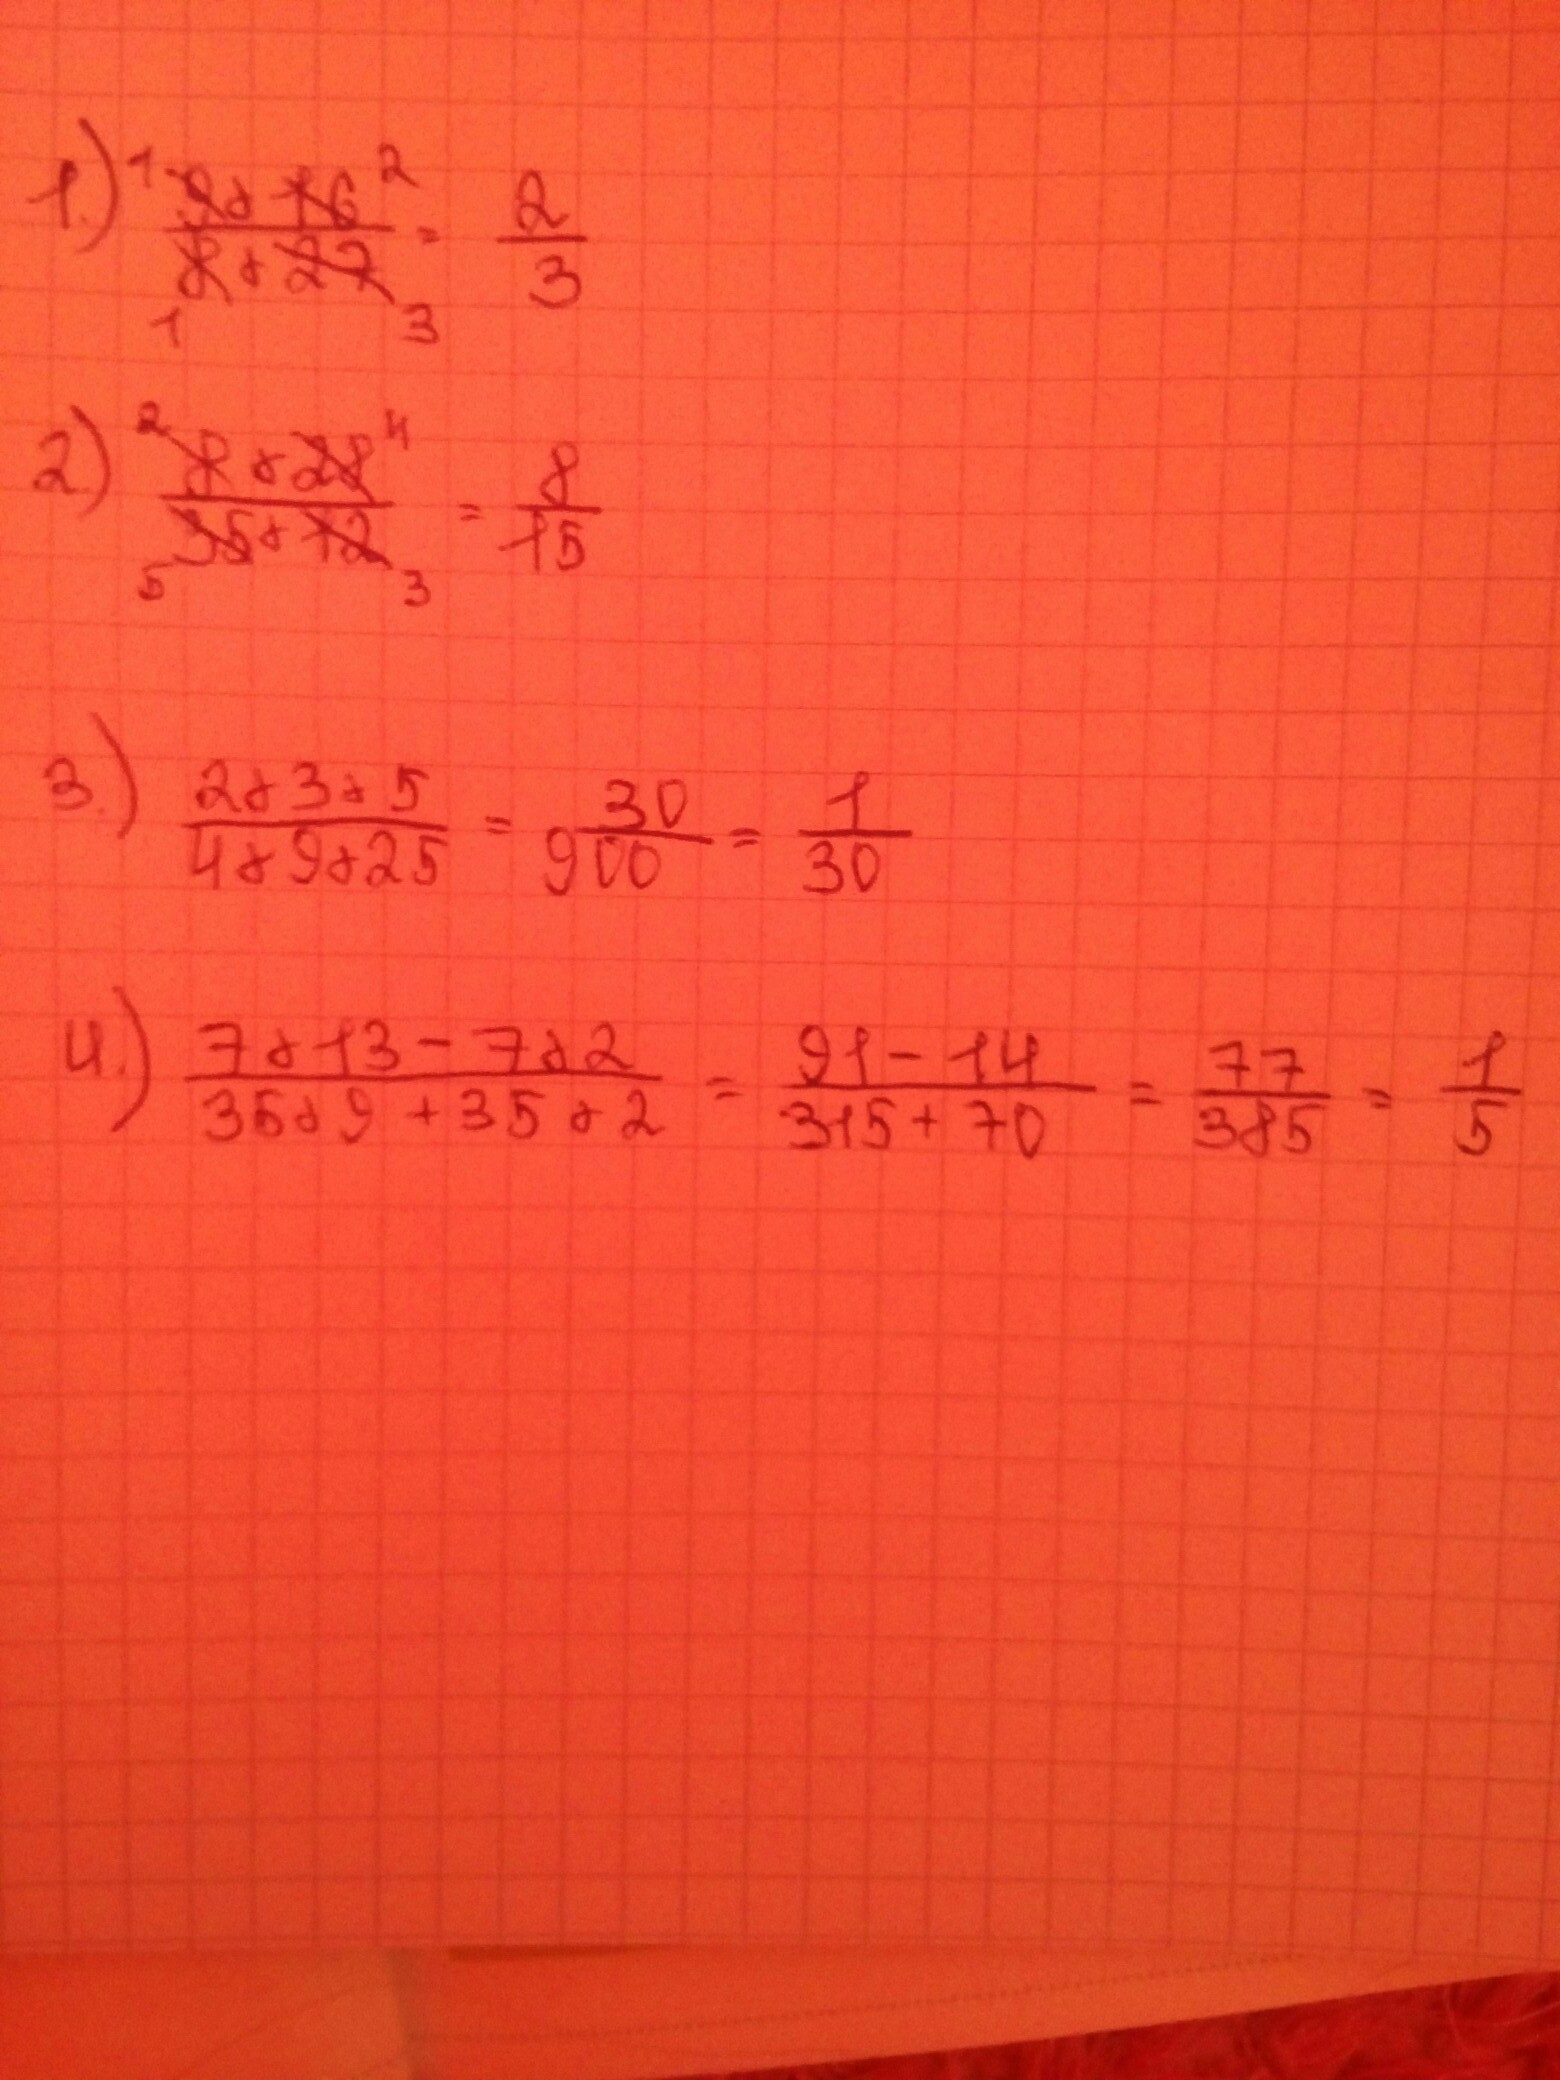 1.) 1 9 x 16 2 / 1 8 x 27 3 = 2/3
2) 2 8 x 28 4 / 5 35 x 12 3 = 8/15
3.) 2 x 3 x 5 / 4 x 9 x 25 = 30/900 = 1/30
4.) 7 x 13 - 7 x 2 / 35 x 9 + 35 x 2 = 91 - 14 / 315 + 70 = 77/385 = 1/5